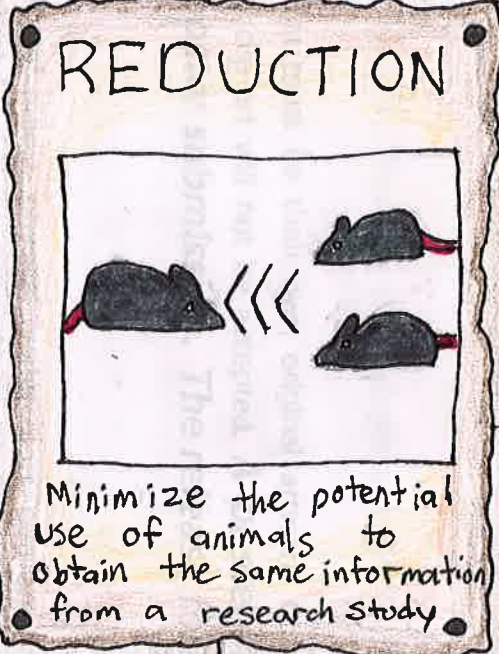 REDUCTION
Minimize the potential
use of animals to
obtain the same information
from a research study